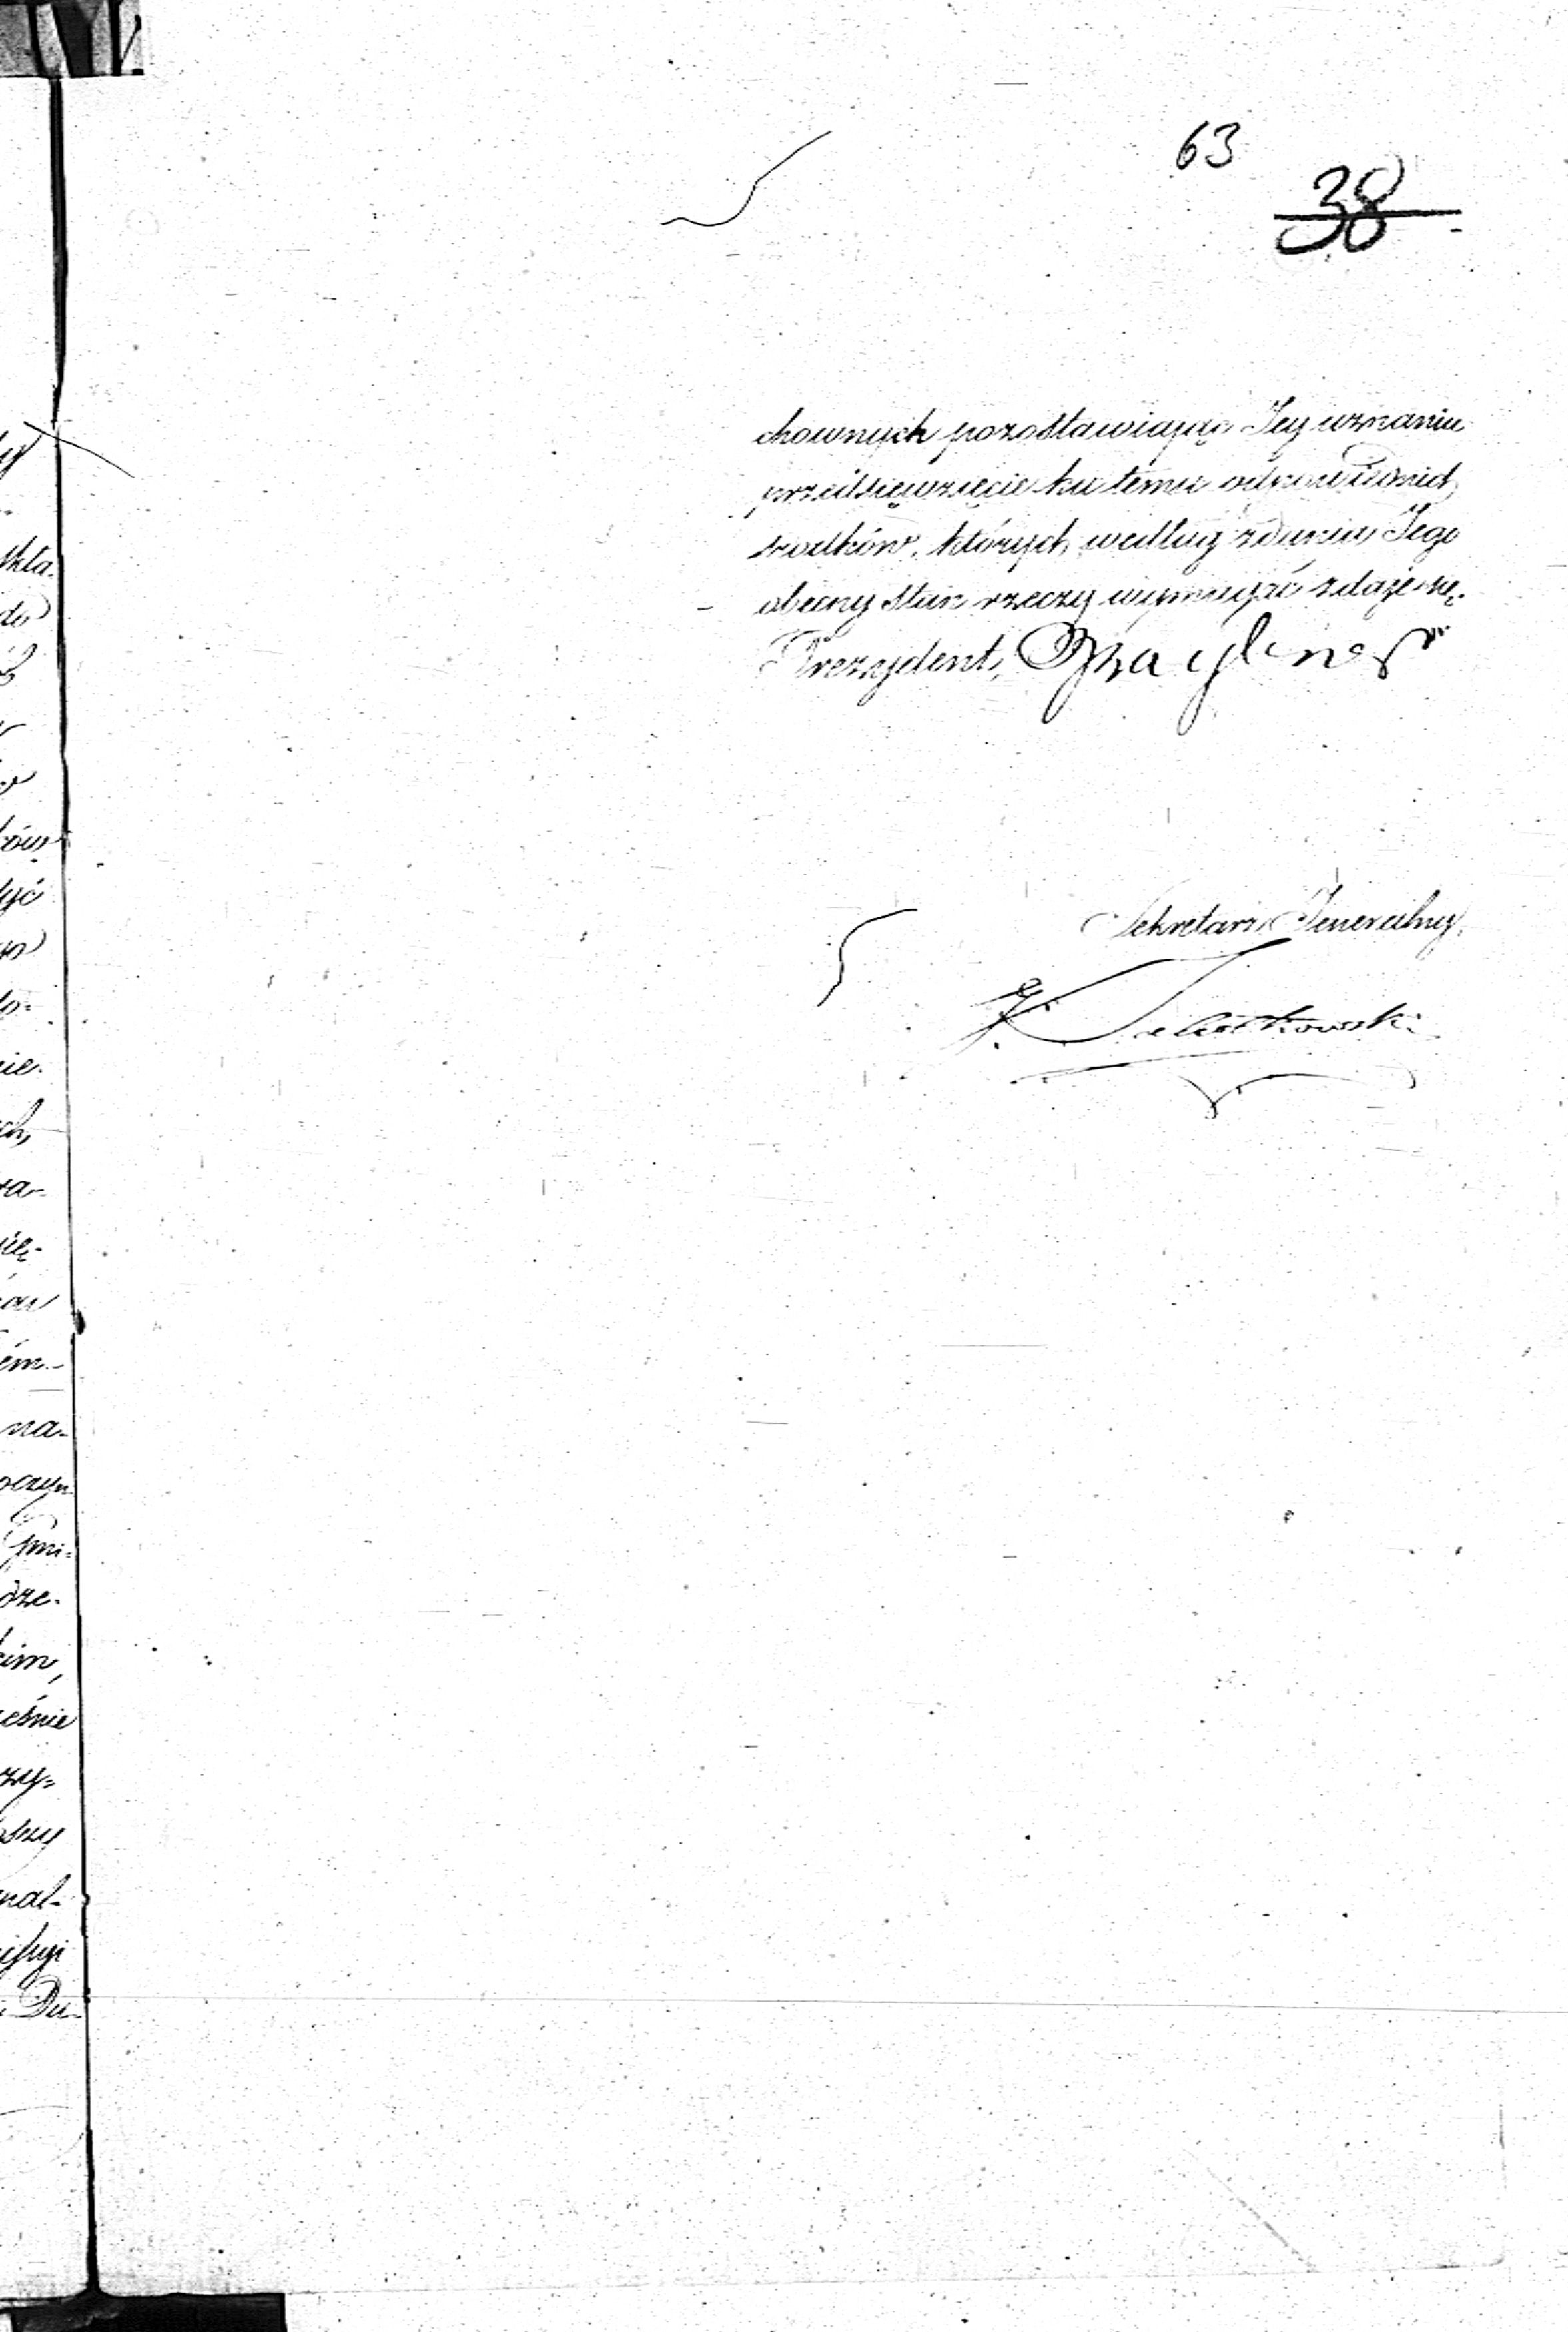 63
38
chownych pozostawiając Jey uznaniu
przedsięwzięcie ku temu odpowiednich
srodków, których według zdania Jego
obecny stan rzeczy wymagać zdaje się.
Prezydent,
Sekretarz Jeneralny,
kła-
do
ów
yć
to-
nie-
ch,
ra-
ém-
na-
oczyn
Gmi-
dze-
kim,
eśnie
zy-
nal-
Du-